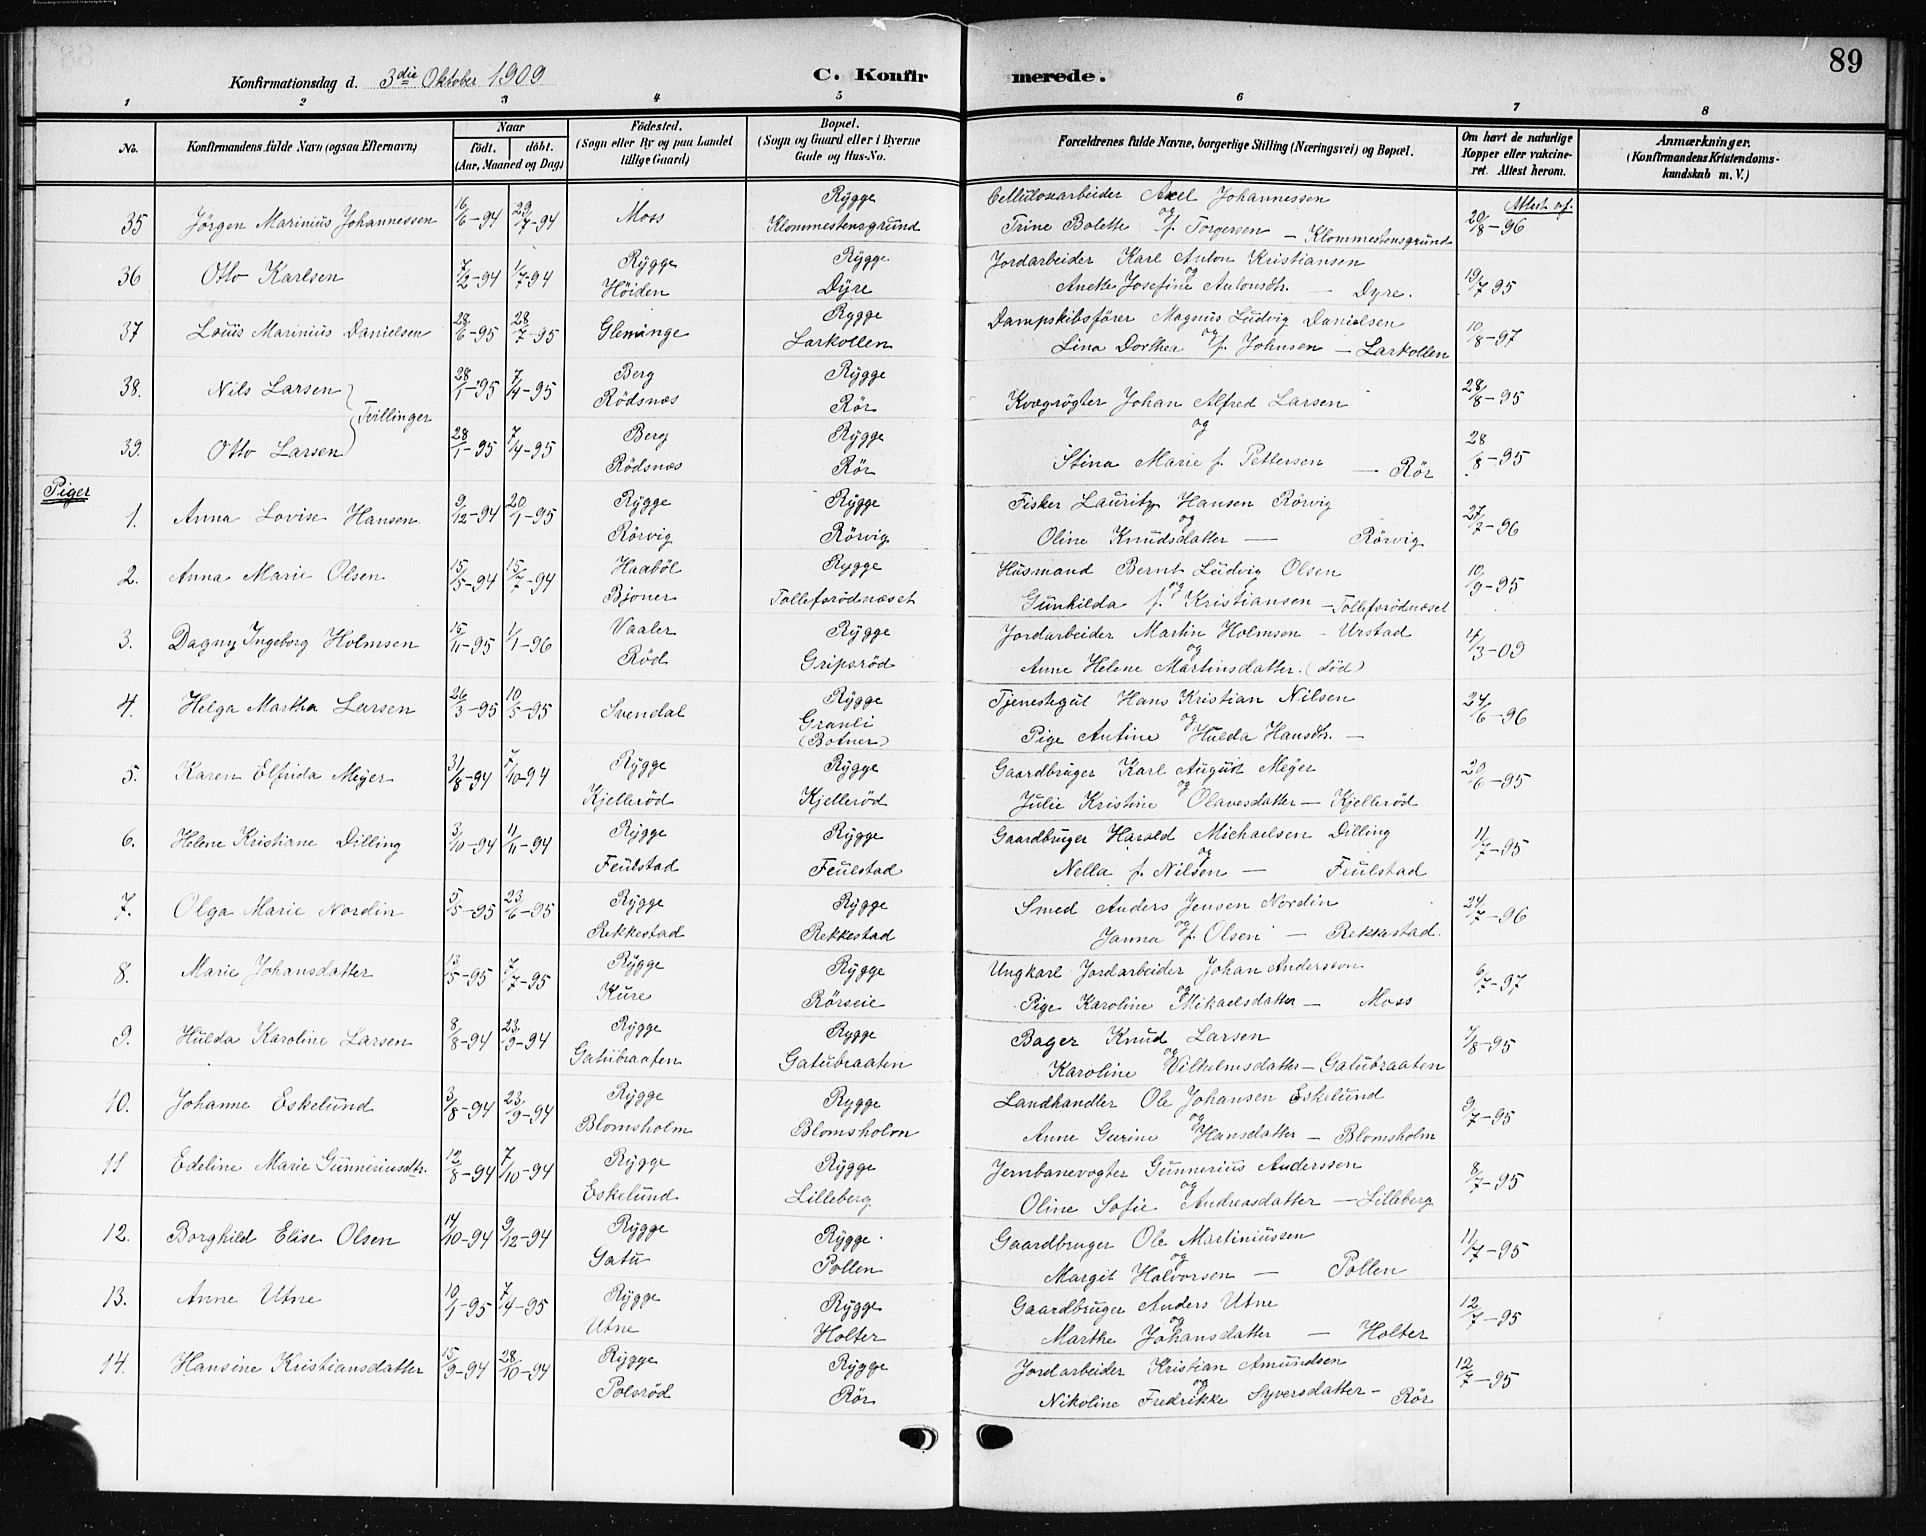 89
Konfirmationsdag d. 3die Oktober 1909 C. Konfirmerede.
1 2 3 4 5 6 7 8
No. Konfirmandens fulde Navn (ogsaa Efternavn) Naar født. døbt. (Aar, Maaned og Dag) Fødested. (Sogn eller By og paa Landet tillige Gaard) Bopæl. (Sogn og Gaard eller i Byerne Gade og Hus-No. Forældrenes fulde Navne, borgerlige Stilling (Næringsvei) og Bopæl. Om havt de naturlige Kopper eller vakcineret. Attest herom. Anmærkninger. (Konfirmandens Kristendomskundskab m. V.)
Attest af.
35 Jörgen Marinius Johannessen 16/6-94 29/7-94 Moss Rygge Cellulosarbeider Axel Johannessen 20/8-96
Klommestensgrund og Trine Bolette f. Torgersen - Klommestensgrund
36 Otto Karlsen 7/2-94 1/7-94 Rygge Rygge Jordarbeider Karl Anton Kristiansen 19/7 95
Höiden Dyre og Anette Josefine Antonsdtr. - Dyre.
37 Louis Marinius Danielsen 28/6-95 28/7-95 Glemminge Rygge Dampskibsförer Magnus Ludvig Danielsen 10/8-97
Larkollen og Lina Dorther f. Johnsen - Larkollen
38. Nils Larsen 28/1-95 7/4-95 Berg Rygge Kvægrögter Johan Alfred Larsen 28/8-95
Tvillinger Rödsnæs Rör og
39. Otto Larsen 28/1-95 7/4-95 Berg Rygge Stina Marie f. Pettersen - Rör 28/8-95
Rödsnæs Rör
Piger
1. Anna Lovise Hansen 9/12-94 20/1-95 Rygge Rygge Fisker Lauritz Hansen Rörvig 27/7-96
Rörvig Rörvig og Oline Knudsdatter - Rörvig
2. Anna Marie Olsen 15/5-94 15/7-94 Haaböl Rygge Husmand Bernt Ludvig Olsen 10/9-95
Bjoner Tollefsrödnæset og Gunhilda f. Kristiansen - Tollefsrödnæset
3. Dagny Ingeborg Holmsen 15/11-95 1/1-96 Vaaler Rygge Jordarbeider Martin Holmsen - Urstad 4/3-09
Röd Gripsröd og Anne Helene Martinsdatter. (död)
4. Helga Martha Larsen 26/3-95 10/5-95 Svendal Rygge Tjenestegut Hans Kristian Nilsen 24/6-96
Granli og
(Botner) Pige Antine Hulda Hansdtr. -
5. Karen Elfrida Meyer 31/8-94 7/10-94 Rygge Rygge Gaardbruger Karl August Meyer 20/6-95
Kjelleröd Kjelleröd og Julie Kristine Olavesdatter - Kjelleröd
6. Helene Kristiane Dilling 3/10-94 11/11-94 Rygge Rygge Gaardbruger Harald Michaelsen Dilling 11/7-95
Feulstad Feulstad og Nella f. Nilsen - Feulstad
7. Olga Marie Nordin 5/5-95 23/6-95 Rygge Rygge Smed Anders Jensen Nordin 24/7-96
Rekkestad Rekkestad og Janna f. Olsen - Rekkestad.
8. Marie Johansdatter 13/5-95 7/7-95 Rygge Rygge Ungkarl Jordarbeider Johan Andersson 6/7-97
Kure Rörseie og Pige Karoline Mikaelsdatter - Moss
9. Hulda Karoline Larsen 8/8-94 23/9-94 Rygge Rygge Bager Knud Larsen 7/8-95
Gatubraaten Gatubraaten og Karoline Vilhelmsdatter - Gatubraaten
10. Johanne Eskelund 3/8-94 23/9-94 Rygge Rygge Landhandler Ole Johansen Eskelund 9/7-95
Blomsholm Blomsholm og Anne Gurine Hansdatter - Blomsholm
11 Edeline Marie Gunneriusdtr. 12/8-94 7/10-94 Rygge Rygge Jernbanevogter Gunnerius Anderssen 8/7-95
Eskelund Lilleberg og Oline Sofie Andreasdatter - Lilleberg
12. Borghild Elise Olsen 14/10-94 9/12-94 Rygge Rygge Gaardbruger Ole Martiniussen 11/7-95
Gatu Pollen og Margit Halvorsen - Pollen
13. Anne Utne 10/1-95 7/4-95 Rygge Rygge Gaardbruger Anders Utne 12/7-95
Utne Holter og Marthe Johansdatter - Holter
14. Hansine Kristiansdatter 15/9-94 28/10-94 Rygge Rygge Jordarbeider Kristian Amundsen 12/7-95
Polsröd Rör og Nikoline Fredrikke Syversdatter - Rör